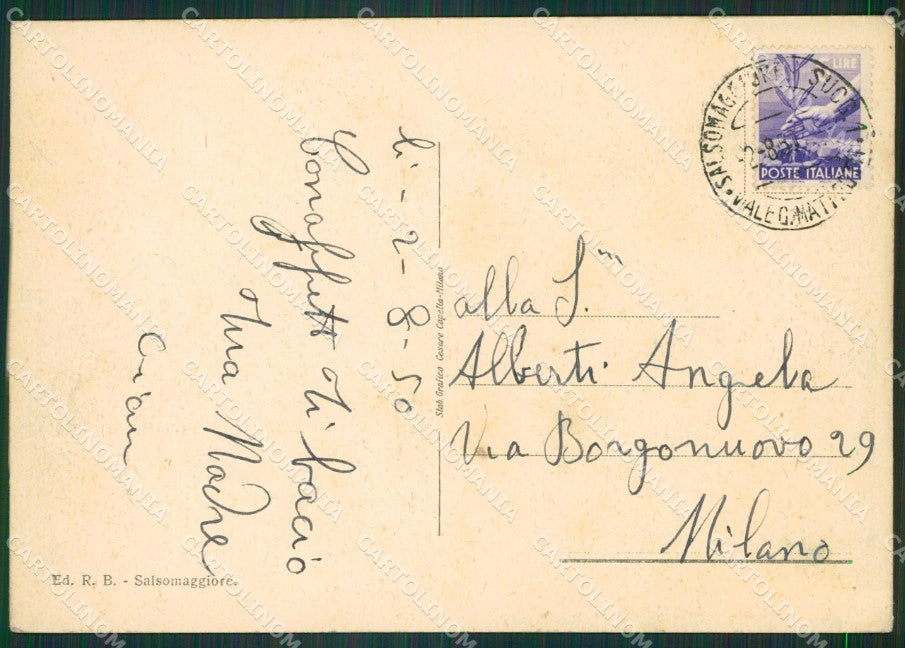 li - 2 - 8 - 50
Con affetto ti bacio
tua Madre
LIRE
POSTE ITALIANE
SALSOMAGGIORE SUCC. 1
2-8-50
VIALE G. MATTEOTTI
alla S.
Alberti Angela
Via Borgonuovo 29
Milano
Stab. Grafico Cesare Capello-Milano
Ed. R. B. - Salsomaggiore.
CARTOLINOMANIA